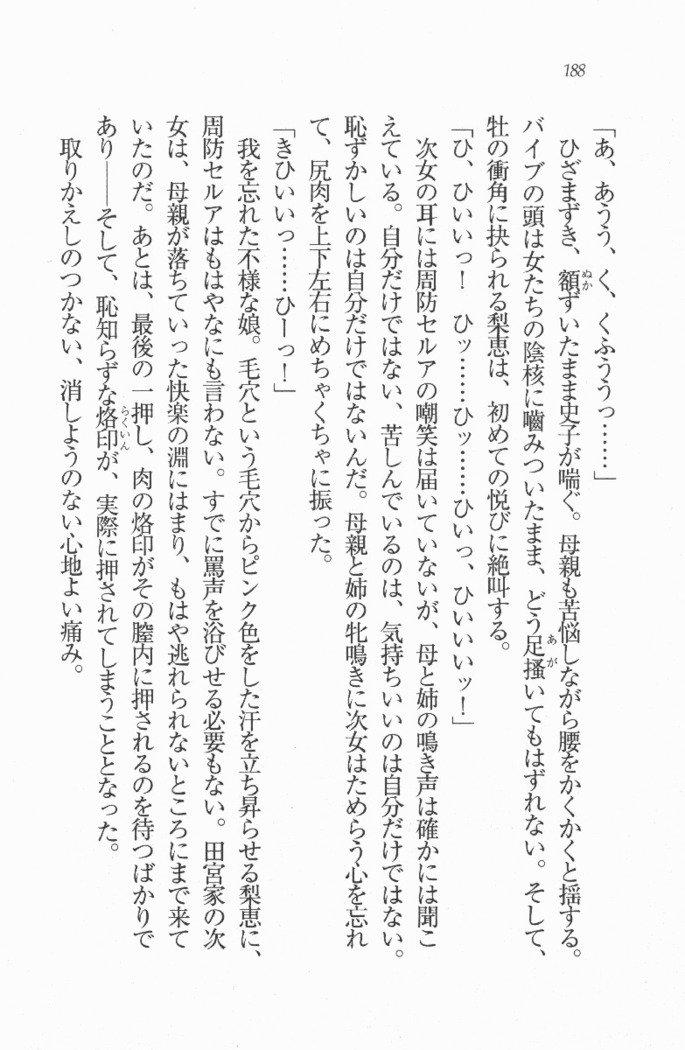 188
「あ、あうう、く、くふううっ……」
ひざまずき、額ずいたまま史子が喘ぐ。母親も苦悩しながら腰をかくかくと揺する。
ぬか
バイブの頭は女たちの陰核に嚙みついたまま、どう足搔いてもはずれない。そして、
あが
牡の衝角に抉られる梨恵は、初めての悦びに絶叫する。
「ひ、ひいいっ！　ひッ……ひッ……ひいっ、ひいいいッ！」
次女の耳には周防セルアの嘲笑は届いていないが、母と姉の鳴き声は確かには聞こ
えている。自分だけではない、苦しんでいるのは、気持ちいいのは自分だけではない。
恥ずかしいのは自分だけではないんだ。母親と姉の牝鳴きに次女はためらう心を忘れ
て、尻肉を上下左右にめちゃくちゃに振った。
「きひいいっ……ひーっ！」
我を忘れた不様な娘。毛穴という毛穴からピンク色をした汗を立ち昇らせる梨恵に、
周防セルアはもはやなにも言わない。すでに罵声を浴びせる必要もない。田宮家の次
女は、母親が落ちていった快楽の淵にはまり、もはや逃れられないところにまで来て
いたのだ。あとは、最後の一押し、肉の烙印がその膣内に押されるのを待つばかりで
あり――そして、恥知らずな烙印が、実際に押されてしまうこととなった。
らくいん
取りかえしのつかない、消しようのない心地よい痛み。